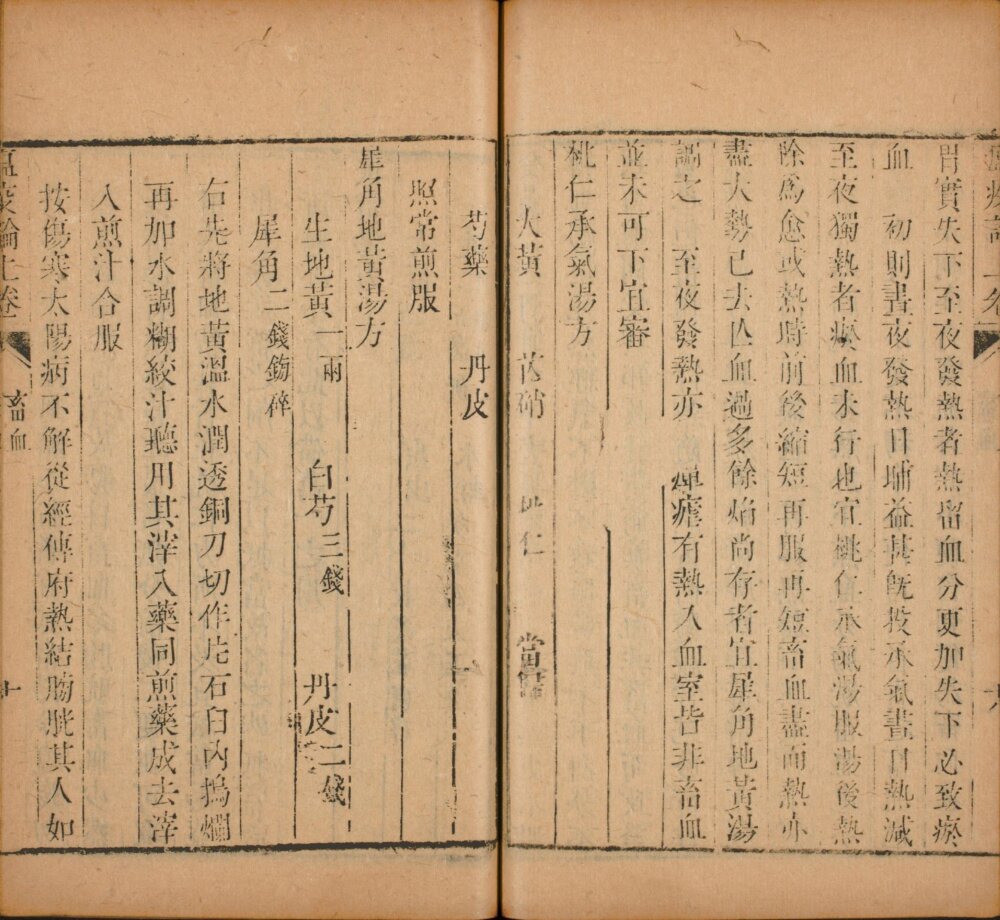 胃實失下至夜發熱者熱留血分更加失下必致瘀
血　初則晝夜發熱日晡益甚旣投承氣晝日熱減
至夜獨熱者瘀血未行也宜桃仁承氣湯服湯後熱
除爲愈或熱時前後縮短再服再短畜血盡而熱亦
盡大勢已去亾血過多餘焰尚存者宜犀角地黃湯
調之　至夜發熱亦　瘅瘧有熱入血室皆非畜血
並未可下宜審
桃仁承氣湯方
大黃　芒硝　桃仁　當歸
芍藥　丹皮
照常煎服
犀角地黃湯方
生地黃一兩　白芍三錢　丹皮二錢
犀角二錢鎊碎
右先將地黃溫水潤透銅刀切作片石臼內搗爛
再加水調糊絞汁聽用其滓入藥同煎藥成去滓
入煎汁合服
按傷寒太陽病不解從經傳府熱結膀胱其人如
溫疫論上卷　畜血　十